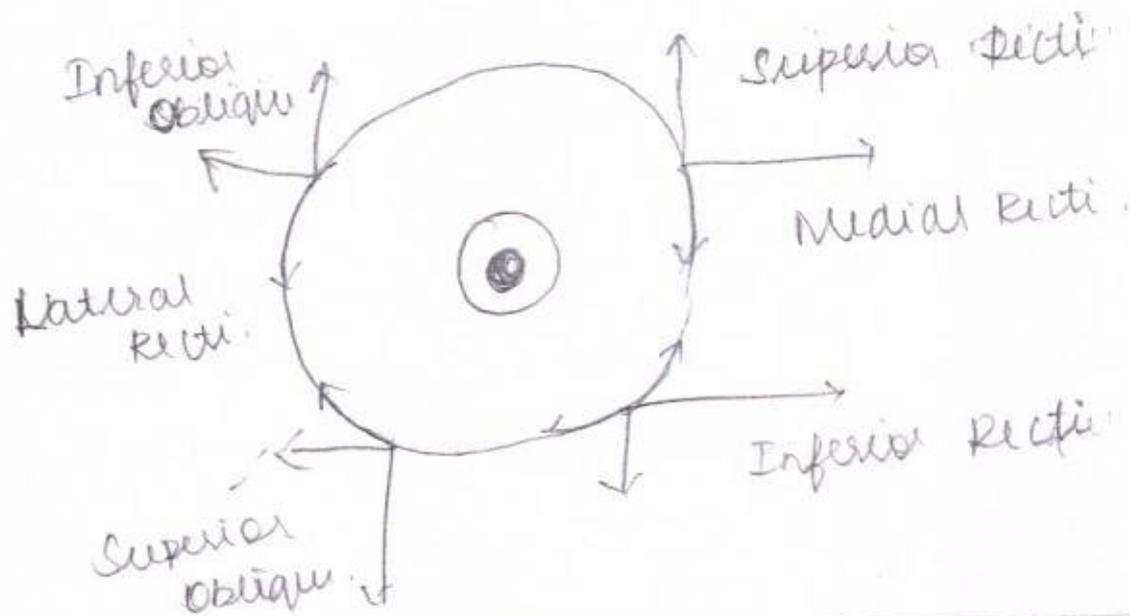 Inferior
Obliqu
Superior Recti
Medial Recti.
Lateral
Recti.
Inferior Recti
Superior
Obliqu